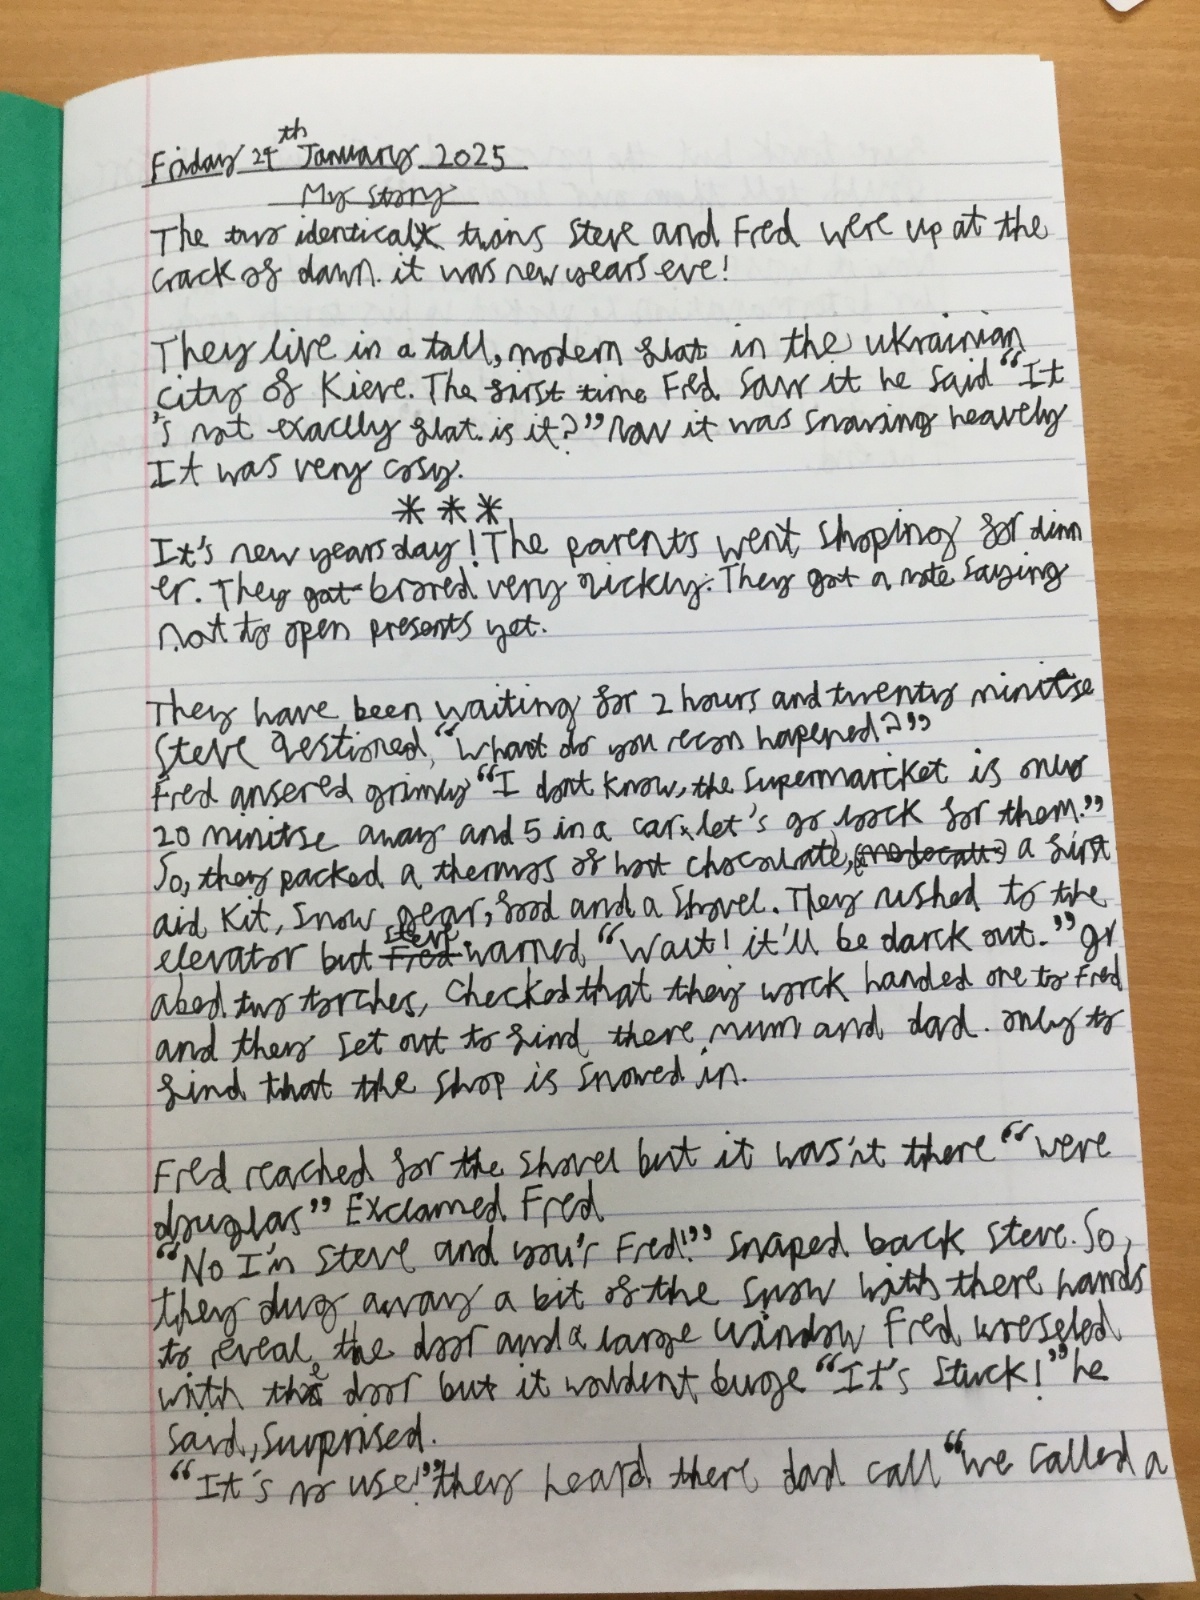 Friday 24th January 2025
My story
The two identical twins Steve and Fred were up at the
crack of dawn. it was new years eve!
They live in a tall, modern flat in the ukrainian
city of Kieve. The first time Fred saw it he said “It
's not exaclly flat is it?” Now it was snowing heavely
It was very cosy.
***
It's new years day! The parents went shoping for dinn
er. They got brored very qickly. They got a note saying
not to open presents yet.
They have been waiting for 2 hours and twenty minitse
Steve qestioned, “what do you recon hapened?”
Fred ansered grimly “I dont know, the supermarcket is only
20 minitse away and 5 in a car, let's go look for them.”
So, they packed a thermos of hot chocolate, a first
aid kit, snow gear, food and a shovel. They rushed to the
elevator but Steve warned “Wait! it'll be darck out.” gr
abed two torches, checked that they work handed one to Fred
and they set out to find there mum and dad. only to
find that the shop is snowed in.
Fred reached for the shovel but it was'nt there “were
douglas” Exclamed Fred
“No I'm Steve and you'r Fred!” snaped back Steve. So,
they dug away a bit of the snow with there hands
to reveal, the door and a large window Fred wresled
with the door but it woldent burge “It's stuck!” he
said, surprised.
“It's no use!” they heard there dad call “we called a